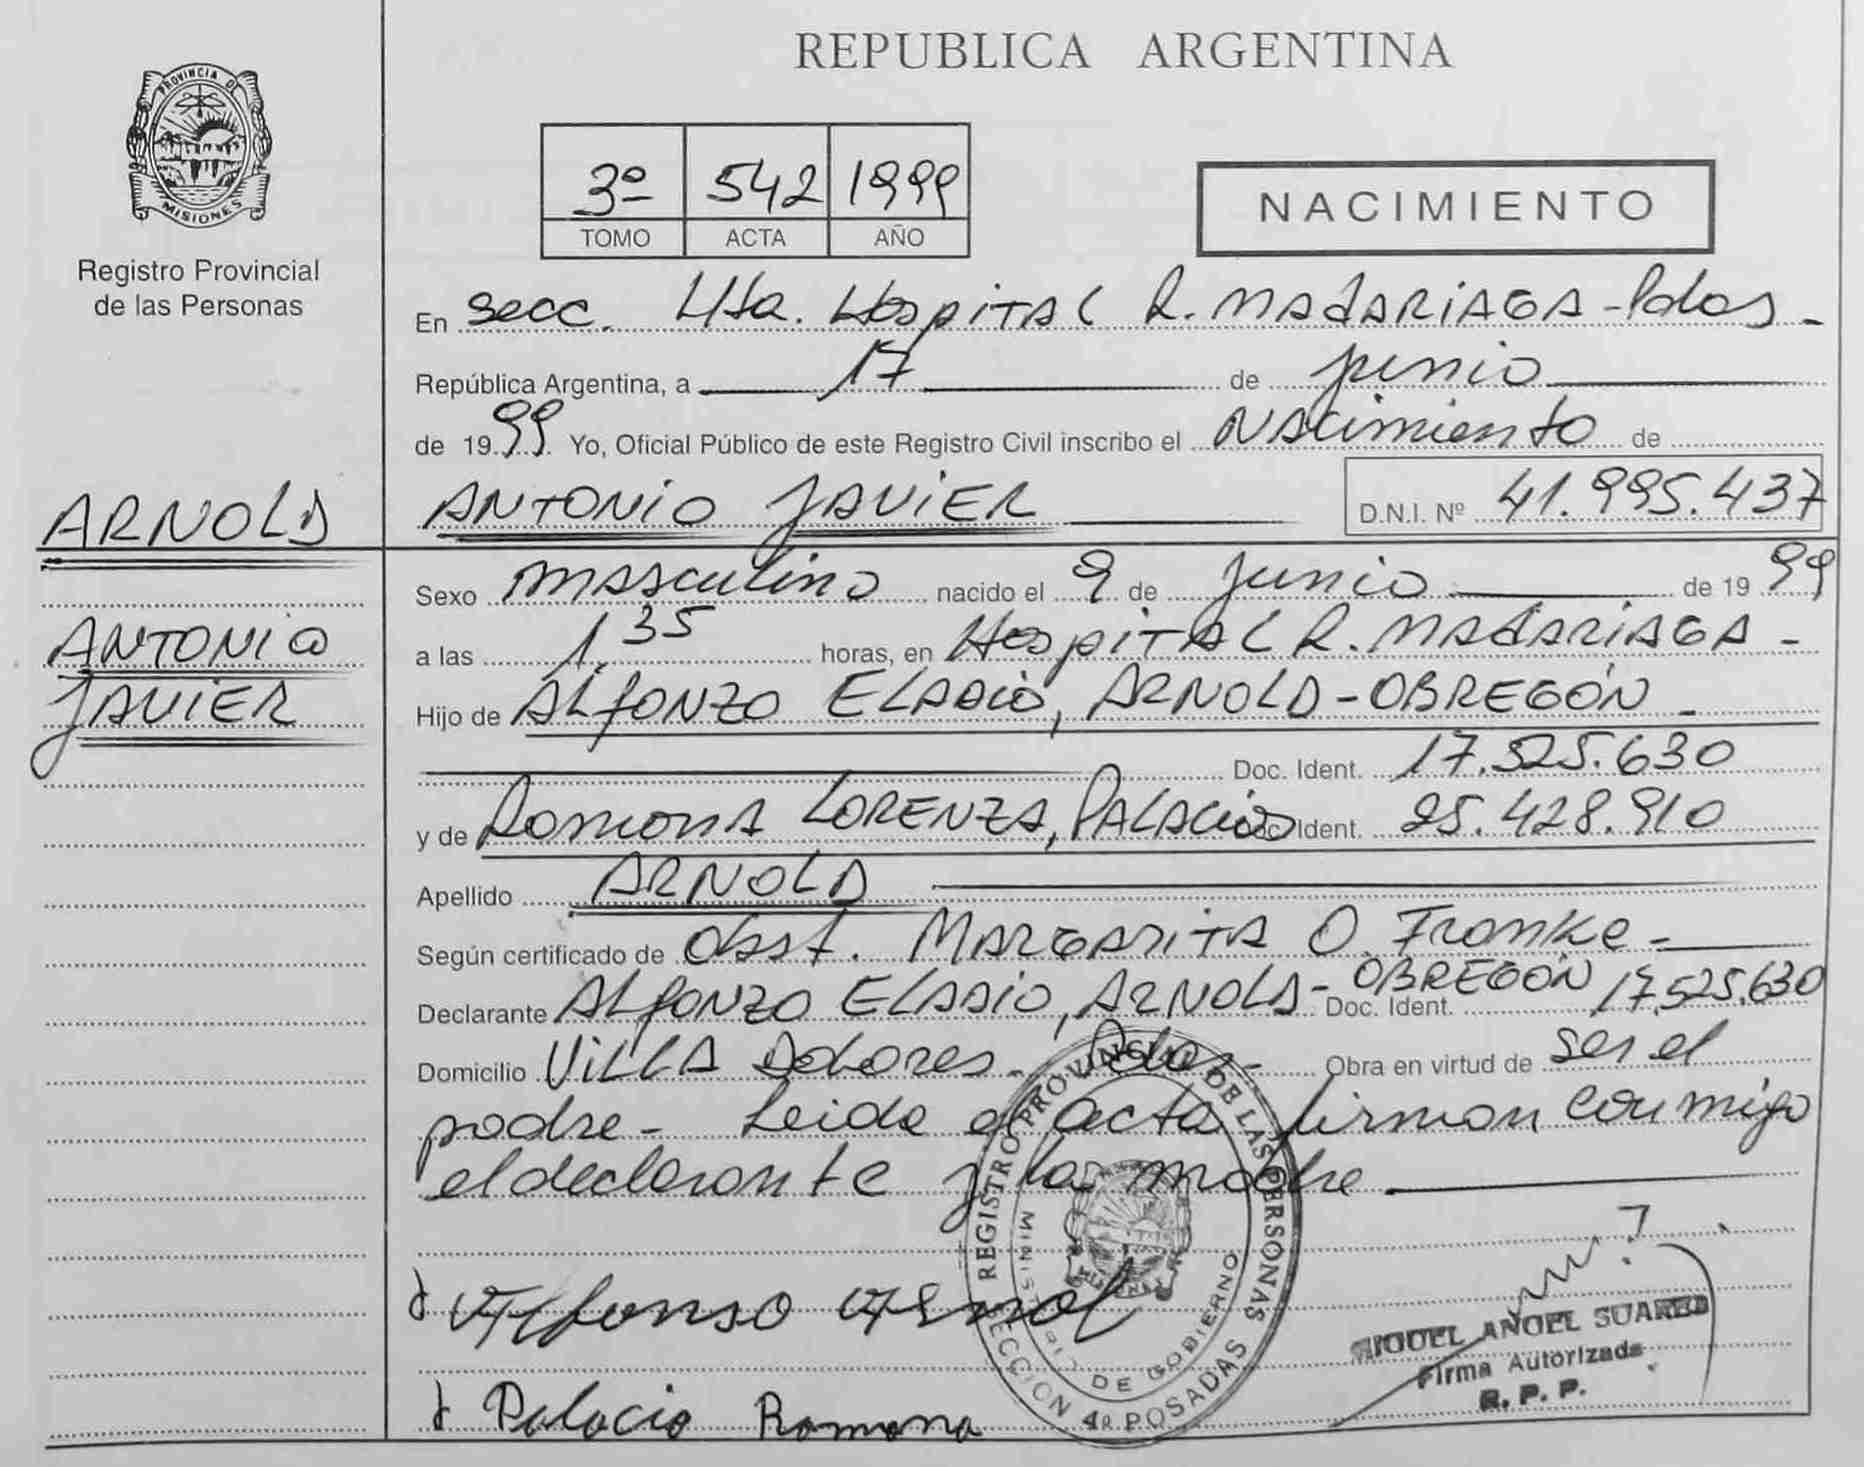 REPUBLICA ARGENTINA
PROVINCIA DE
MISIONES
Registro Provincial
de las Personas
3º 542 1999
TOMO ACTA AÑO
NACIMIENTO
En Secc. 4ta. Hospital R. Madariaga - Pdas -
República Argentina, a 17 de junio
de 1999 Yo, Oficial Público de este Registro Civil inscribo el Nacimiento de
ARNOLD
ANTONIO JAVIER D.N.I. Nº 41.995.437
Sexo masculino nacido el 9 de Junio de 1999
ANTONIO
a las 1,35 horas, en Hospital R. Madariaga -
JAVIER
Hijo de ALFONZO ELADIO, ARNOLD - OBREGÓN -
Doc. Ident. 17.525.630
y de Ramona LORENZA, PALACIOS Doc. Ident. 25.428.910
Apellido ARNOLD
Según certificado de Obst. MARGARITA O. Franke -
Declarante ALFONZO ELADIO, ARNOLD - OBREGÓN Doc. Ident. 17.525.630
Domicilio VILLA Dolores - Pdas - Obra en virtud de ser el
padre - Leida el acta firman conmigo
el declarante y la madre
Alfonso Arnol
Palacio Ramona
REGISTRO PROVINCIAL DE LAS PERSONAS
MINISTERIO DE GOBIERNO
SECCION 4º POSADAS
MIGUEL ANGEL SUAREZ
Firma Autorizada
R. P. P.